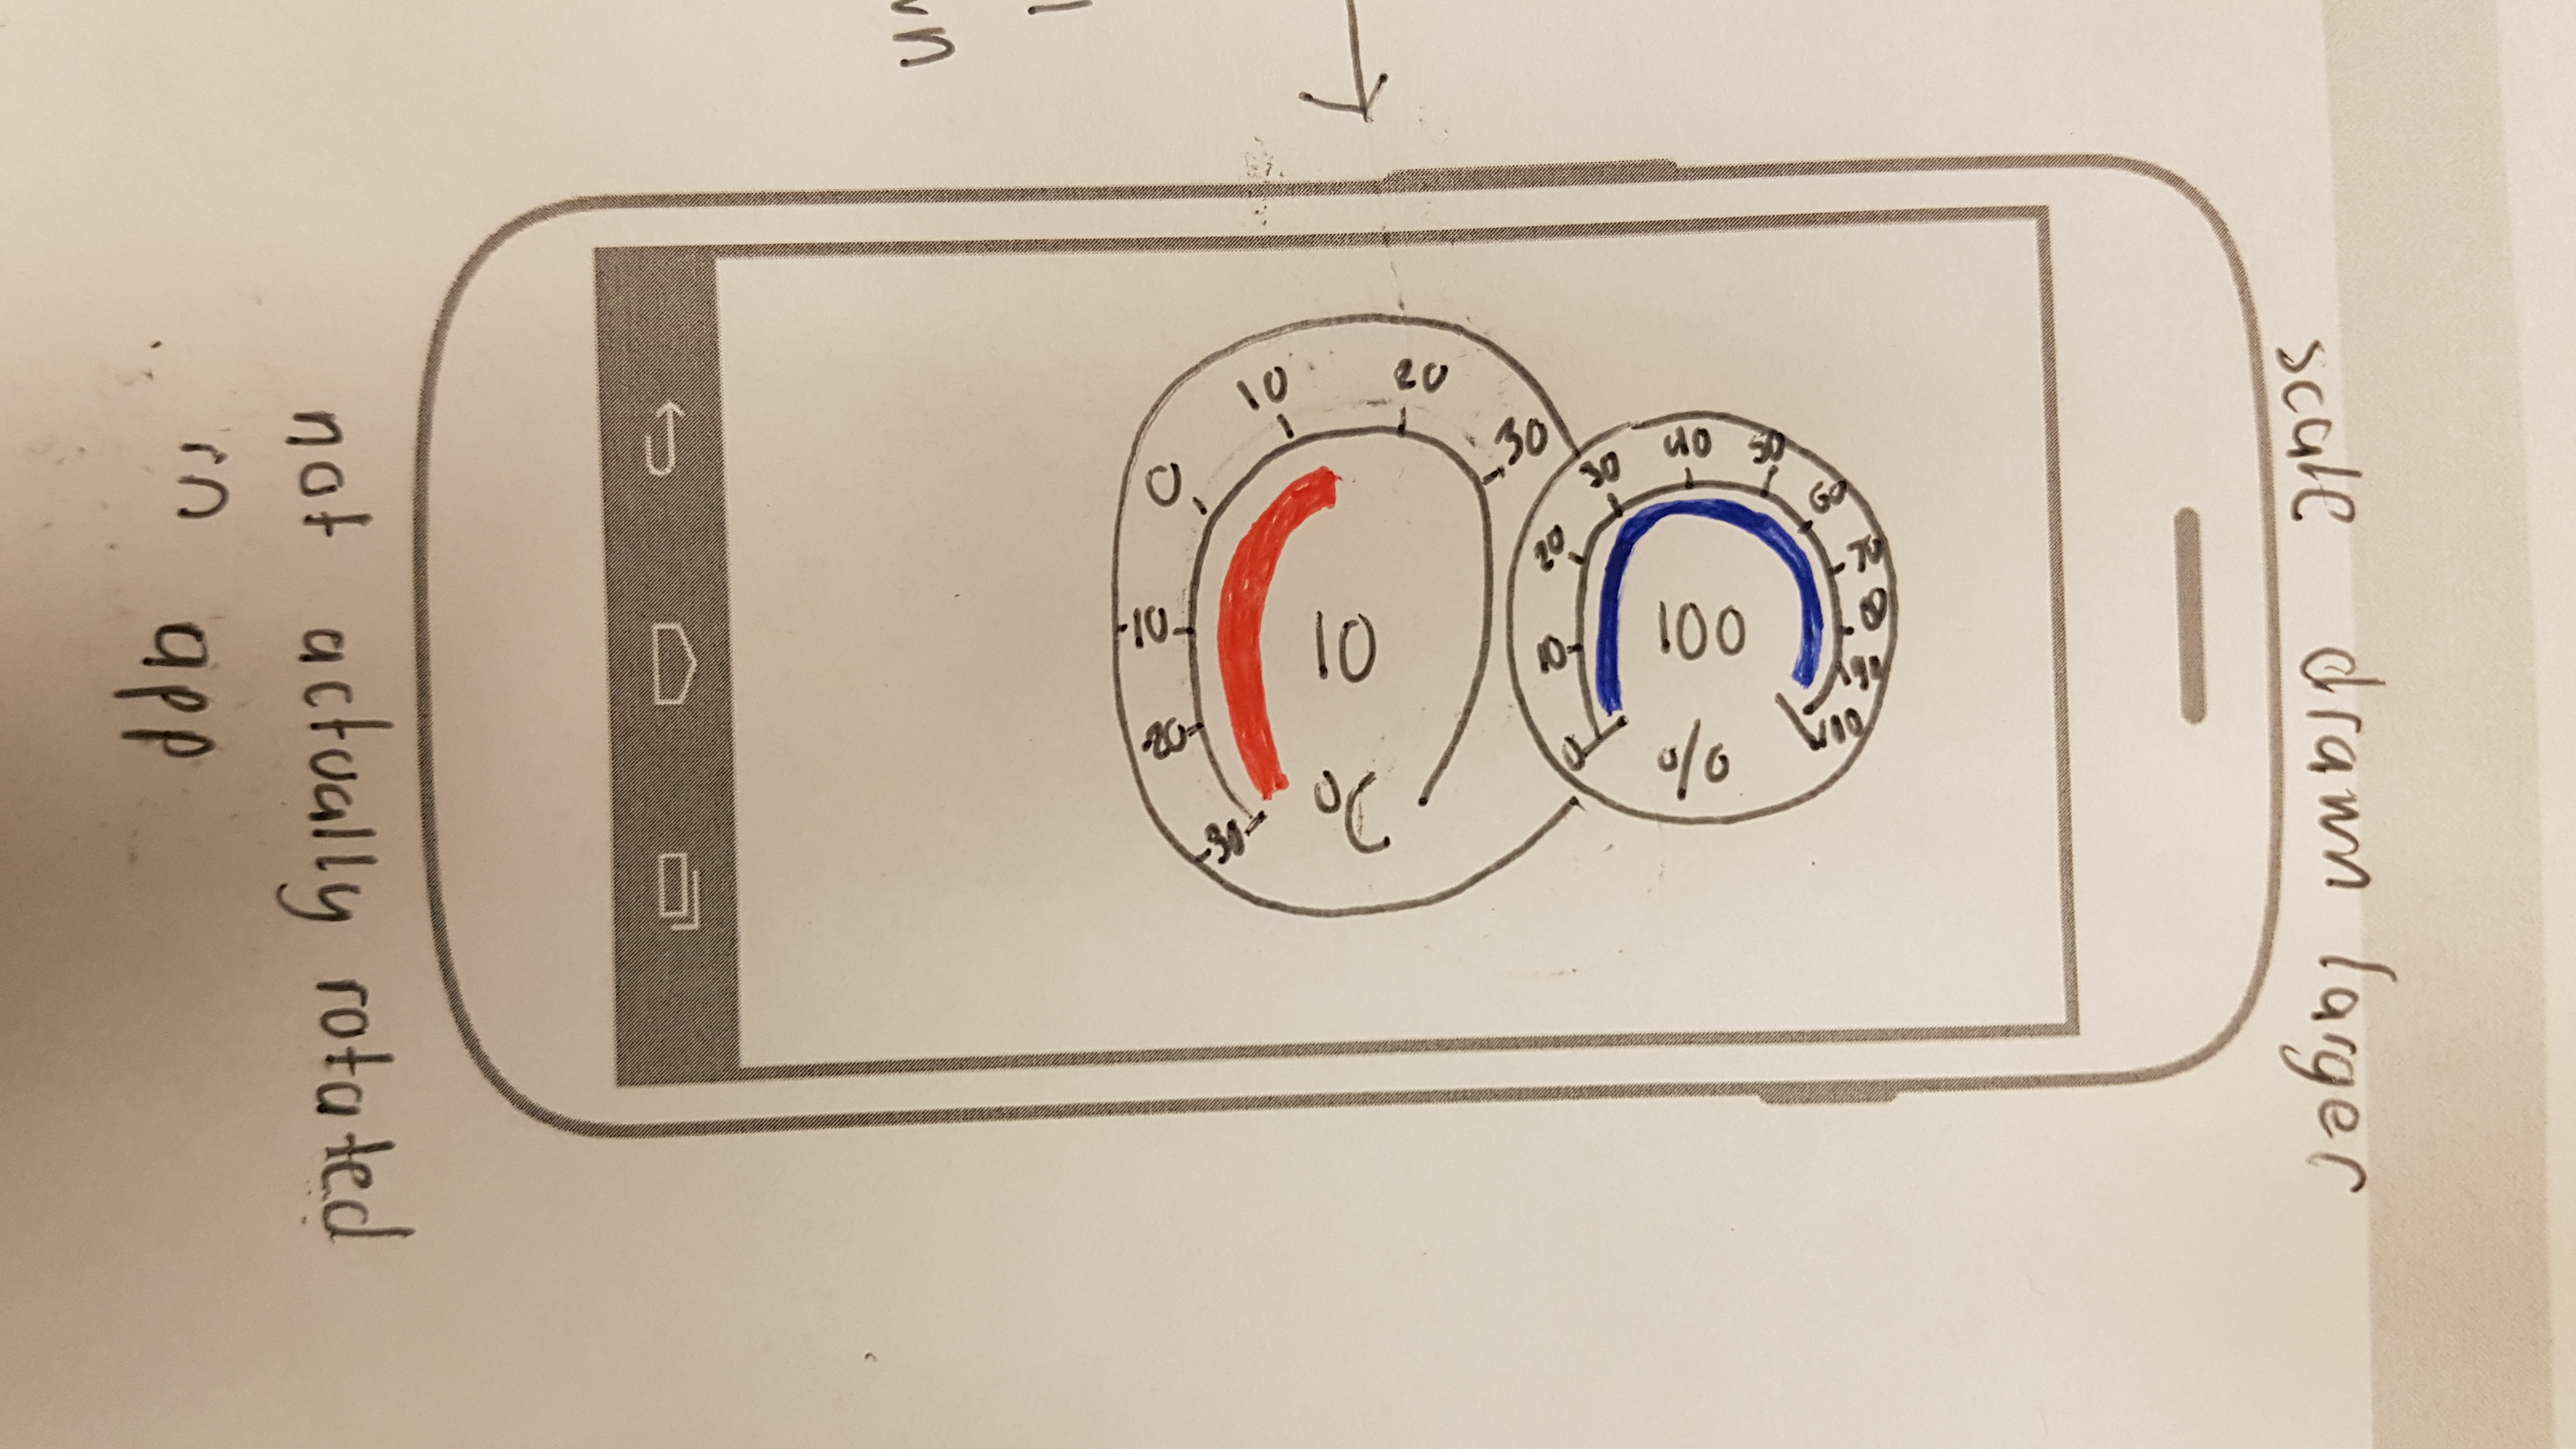 scale drawn larger
0
10
20
30
40
50
60
70
80
90
100
100
%
-30
-20
-10
0
10
20
30
10
°C
not actually rotated
in app